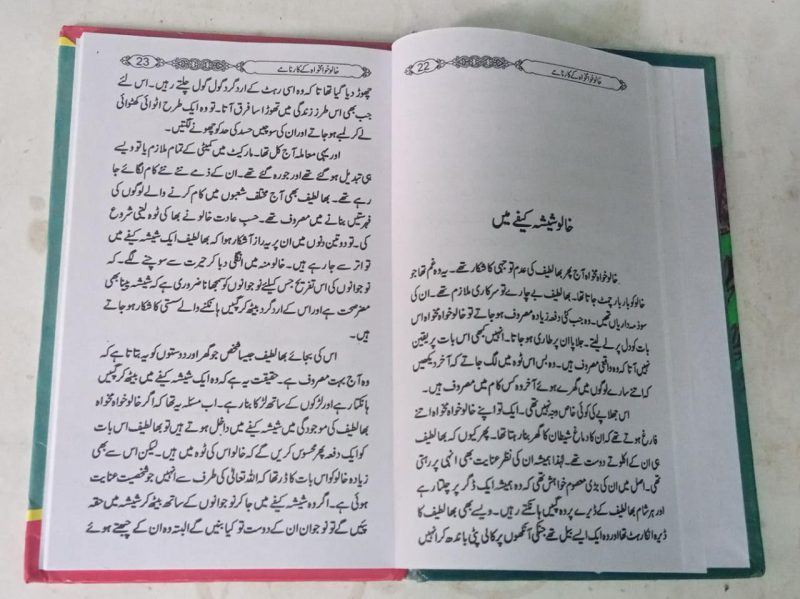 خالو خوامخواہ کے کارنامے
22
خالو شیشہ کیفے میں
خالو خوامخواہ آج پھر بھا لطیف کی عدم توجہی کا شکار تھے۔ یہ وہ غم تھا جو
خالو کو بار بار چمٹ جاتا تھا۔ بھا لطیف بے چارے تو سرکاری ملازم تھے۔ ان کی
سو ذمہ داریاں تھیں۔ وہ جب کئی دفعہ زیادہ مصروف ہو جاتے تو خالو خوامخواہ اس
بات کو دل پر لے لیتے۔ جلاپا ان پر طاری ہو جاتا۔ انہیں کبھی اس بات پر یقین
نہیں آتا کہ وہ واقعی مصروف ہیں۔ وہ بس اس ٹوہ میں لگ جاتے کہ آخر دیکھیں
کہ اتنے سارے لوگوں میں گھرے ہوئے آخر وہ کس کام میں مصروف ہیں۔
اس جھلاپے کی کوئی خاص وجہ نہیں تھی۔ ایک تو اپنے خالو خوامخواہ اتنے
فارغ ہوتے تھے کہ ان کا دماغ شیطان کا گھر بنا رہتا تھا۔ پھر کیوں کہ بھا لطیف
ہی ان کے اکلوتے دوست تھے۔ لہٰذا ہمیشہ ان کی نظر عنایت بھی انہی پر رہتی
تھی۔ اصل میں ان کی بڑی معصوم خواہش تھی کہ وہ ہمیشہ ایک ڈگر پر چلتا رہے
اور ہر شام بھا لطیف کے ڈیرے پر وہ گپیں ہانکتے رہیں۔ ویسے بھی بھا لطیف کا
ڈیرہ انکا رہٹ تھا اور وہ ایک ایسے بیل تھے جنکی آنکھوں پر کالی پٹی باندھ کر انہیں
خالو خوامخواہ کے کارنامے
23
چھوڑ دیا گیا تھا تا کہ وہ اسی رہٹ کے اردگرد گول گول چلتے رہیں۔ اس لئے
جب بھی اس طرز زندگی میں تھوڑا سا فرق آتا۔ تو وہ ایک طرح اٹوانی کھٹوانی
لے کر لمبے ہو جاتے اور ان کی سوچیں حسد کی حد کو چھونے لگتیں۔
اور یہی معاملہ آج کل تھا۔ مارکیٹ میں کمیٹی کے تمام ملازم یا تو ویسے
ہی تبدیل ہو گئے تھے اور جو رہ گئے تھے۔ ان کے ذمے نئے نئے کام لگائے جا
رہے تھے۔ بھا لطیف بھی آج مختلف شعبوں میں کام کرنے والے لوگوں کی
فہرستیں بنانے میں مصروف تھے۔ حسب عادت خالو نے بھا کی ٹوہ لینی شروع
کی۔ تو دو تین دنوں میں ان پر یہ راز آشکار ہوا کہ بھا لطیف ایک شیشہ کیفے میں
تواتر سے جا رہے ہیں۔ خالو منہ میں انگلی دبا کر حیرت سے سوچنے لگے۔ کہ
نوجوانوں کی اس تفریح جس کیلئے نوجوانوں کو سمجھانا ضروری ہے کہ شیشہ پینا بھی
مضر صحت ہے اور اس کے اردگرد بیٹھ کر گپیں ہانکنے والے سستی کا شکار ہو جاتے
ہیں۔
اس کی بجائے بھا لطیف جیسا شخص جو گھر اور دوستوں کو یہ بتاتا ہے کہ
وہ آج بہت مصروف ہے۔ حقیقت یہ ہے کہ وہ ایک شیشہ کیفے میں بیٹھ کر گپیں
ہانکتا رہے اور لڑکوں کے ساتھ لڑکا بنا رہے۔ اب مسئلہ یہ تھا کہ اگر خالو خوامخواہ
بھا لطیف کی موجودگی میں شیشہ کیفے میں داخل ہوتے ہیں تو بھا لطیف اس بات
کو ایک دفعہ پھر محسوس کریں گے کہ خالو اس کی ٹوہ میں ہیں۔ لیکن اس سے بھی
زیادہ خالو کو اس بات کا ڈر تھا کہ اللہ تعالیٰ کی طرف سے انہیں جو شخصیت عنایت
ہوئی ہے۔ اگر وہ شیشہ کیفے میں جا کر نوجوانوں کے ساتھ بیٹھ کر شیشہ میں حقہ
پیں گے تو نوجوان ان کے دوست تو کیا بنیں گے البتہ وہ ان کے چبھتے ہوئے